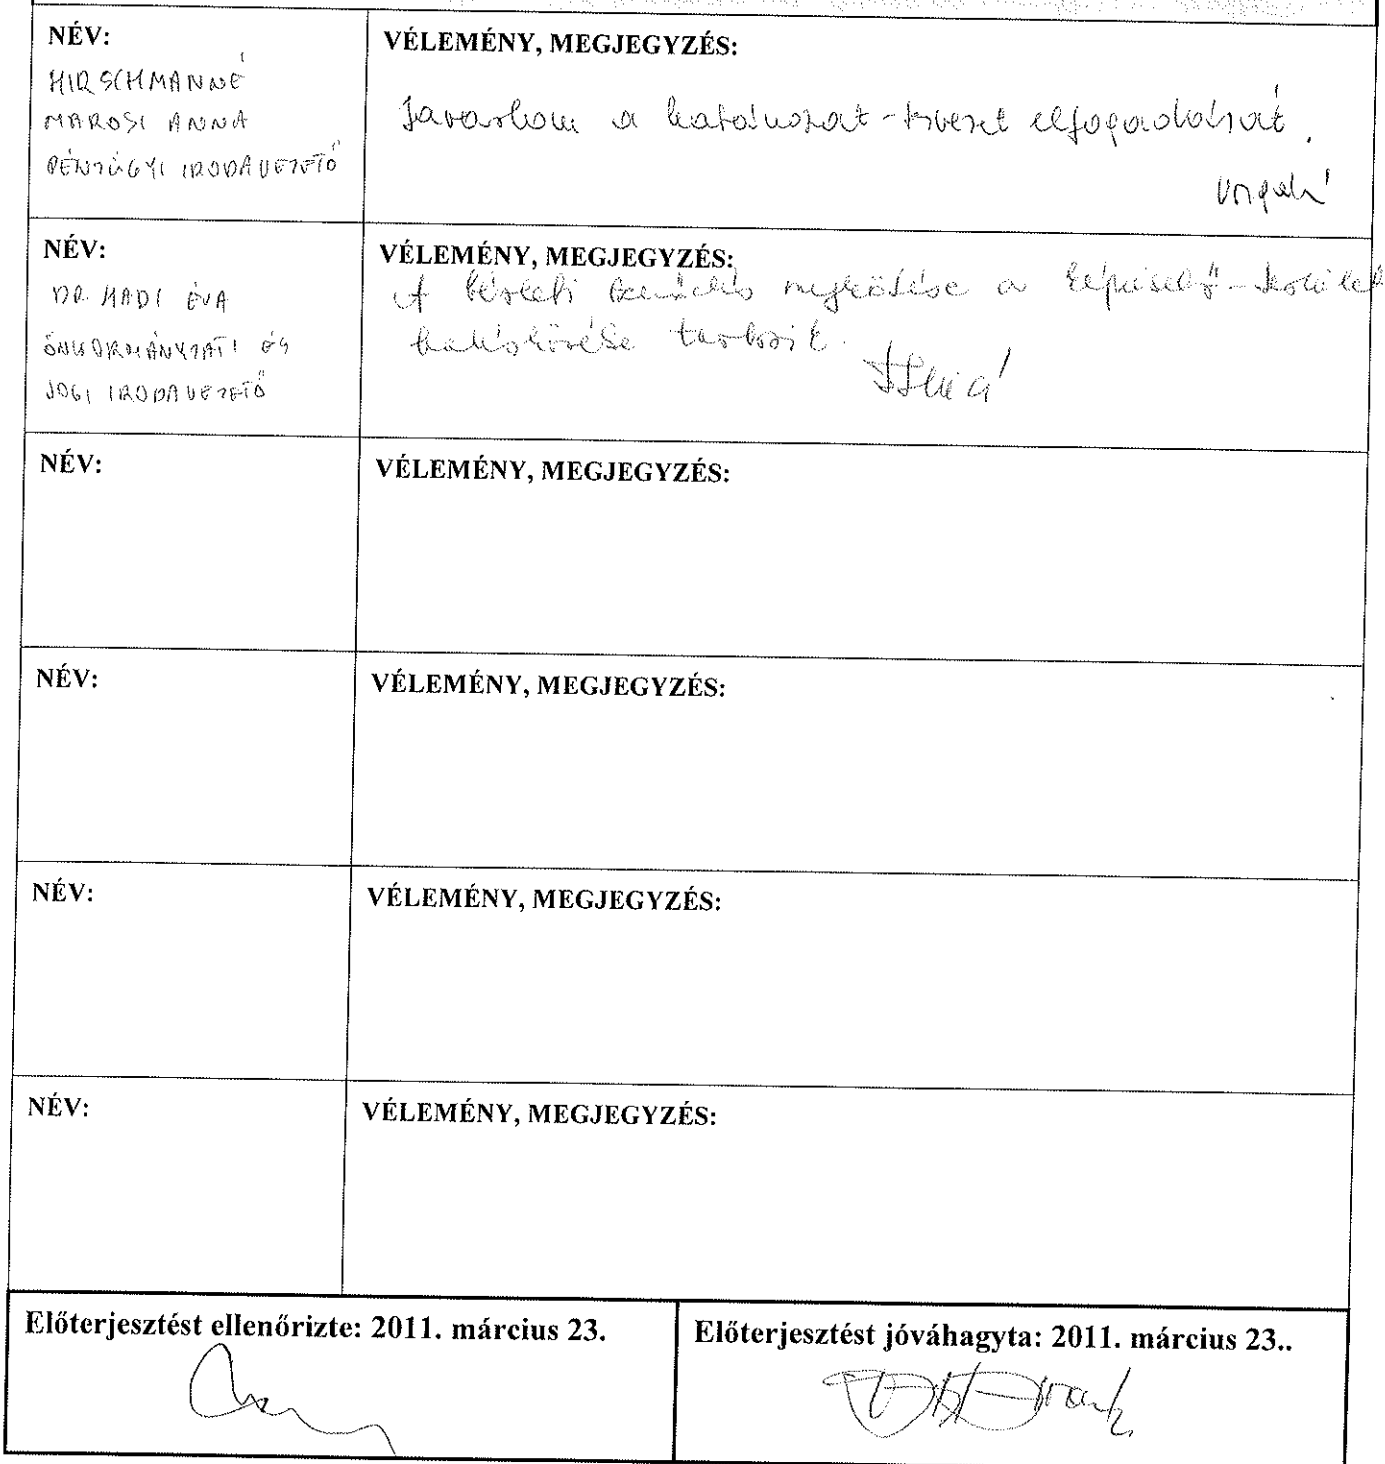 NÉV:
HIRSCHMANNÉ
MAROSI ANNA
PÉNZÜGYI IRODAVEZETŐ
VÉLEMÉNY, MEGJEGYZÉS:
Javaslom a határozat-tervezet elfogadását.
NÉV:
DR. HADI ÉVA
ÖNKORMÁNYZATI ÉS
JOGI IRODAVEZETŐ
VÉLEMÉNY, MEGJEGYZÉS:
A bérleti szerződés megkötése a képviselő-testület
hatáskörébe tartozik.
NÉV:
VÉLEMÉNY, MEGJEGYZÉS:
NÉV:
VÉLEMÉNY, MEGJEGYZÉS:
NÉV:
VÉLEMÉNY, MEGJEGYZÉS:
NÉV:
VÉLEMÉNY, MEGJEGYZÉS:
Előterjesztést ellenőrizte: 2011. március 23.
Előterjesztést jóváhagyta: 2011. március 23..